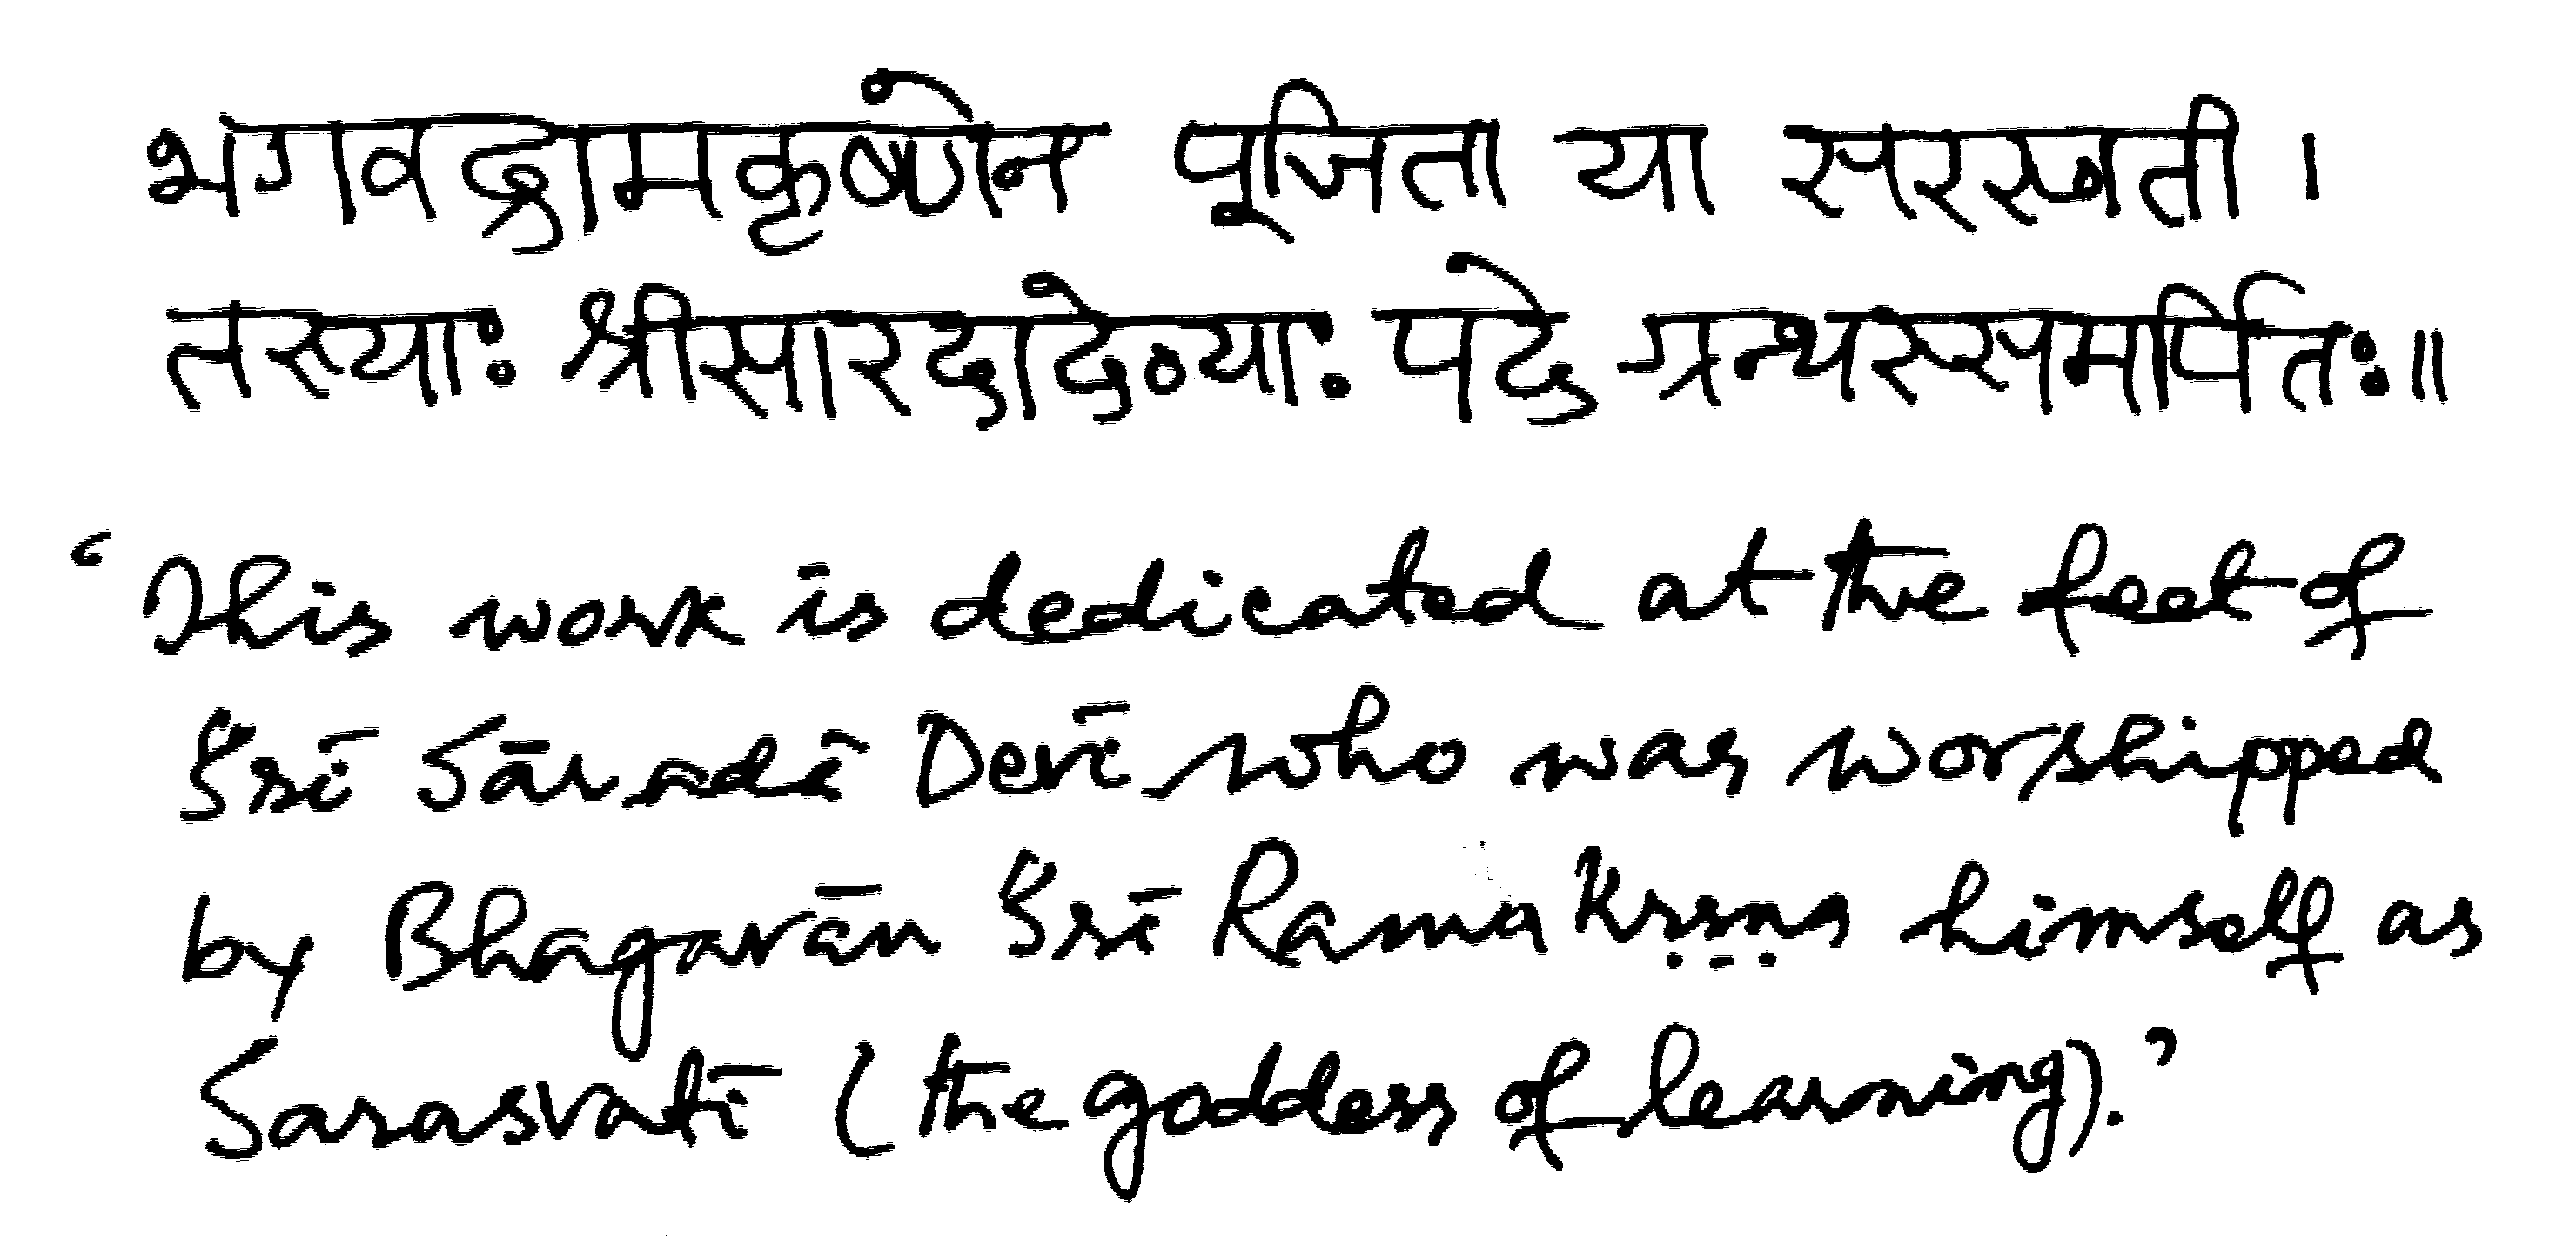 भगवद्रामकृष्णेन पूजिता या सरस्वती ।
तस्याः श्रीसारदादेव्याः पदे ग्रन्थस्समर्पितः॥
‘This work is dedicated at the feet of
Śrī Sāradā Devī who was worshipped
by Bhagavān Śrī RamaKṛṣṇa himself as
Sarasvatī (the goddess of learning).’